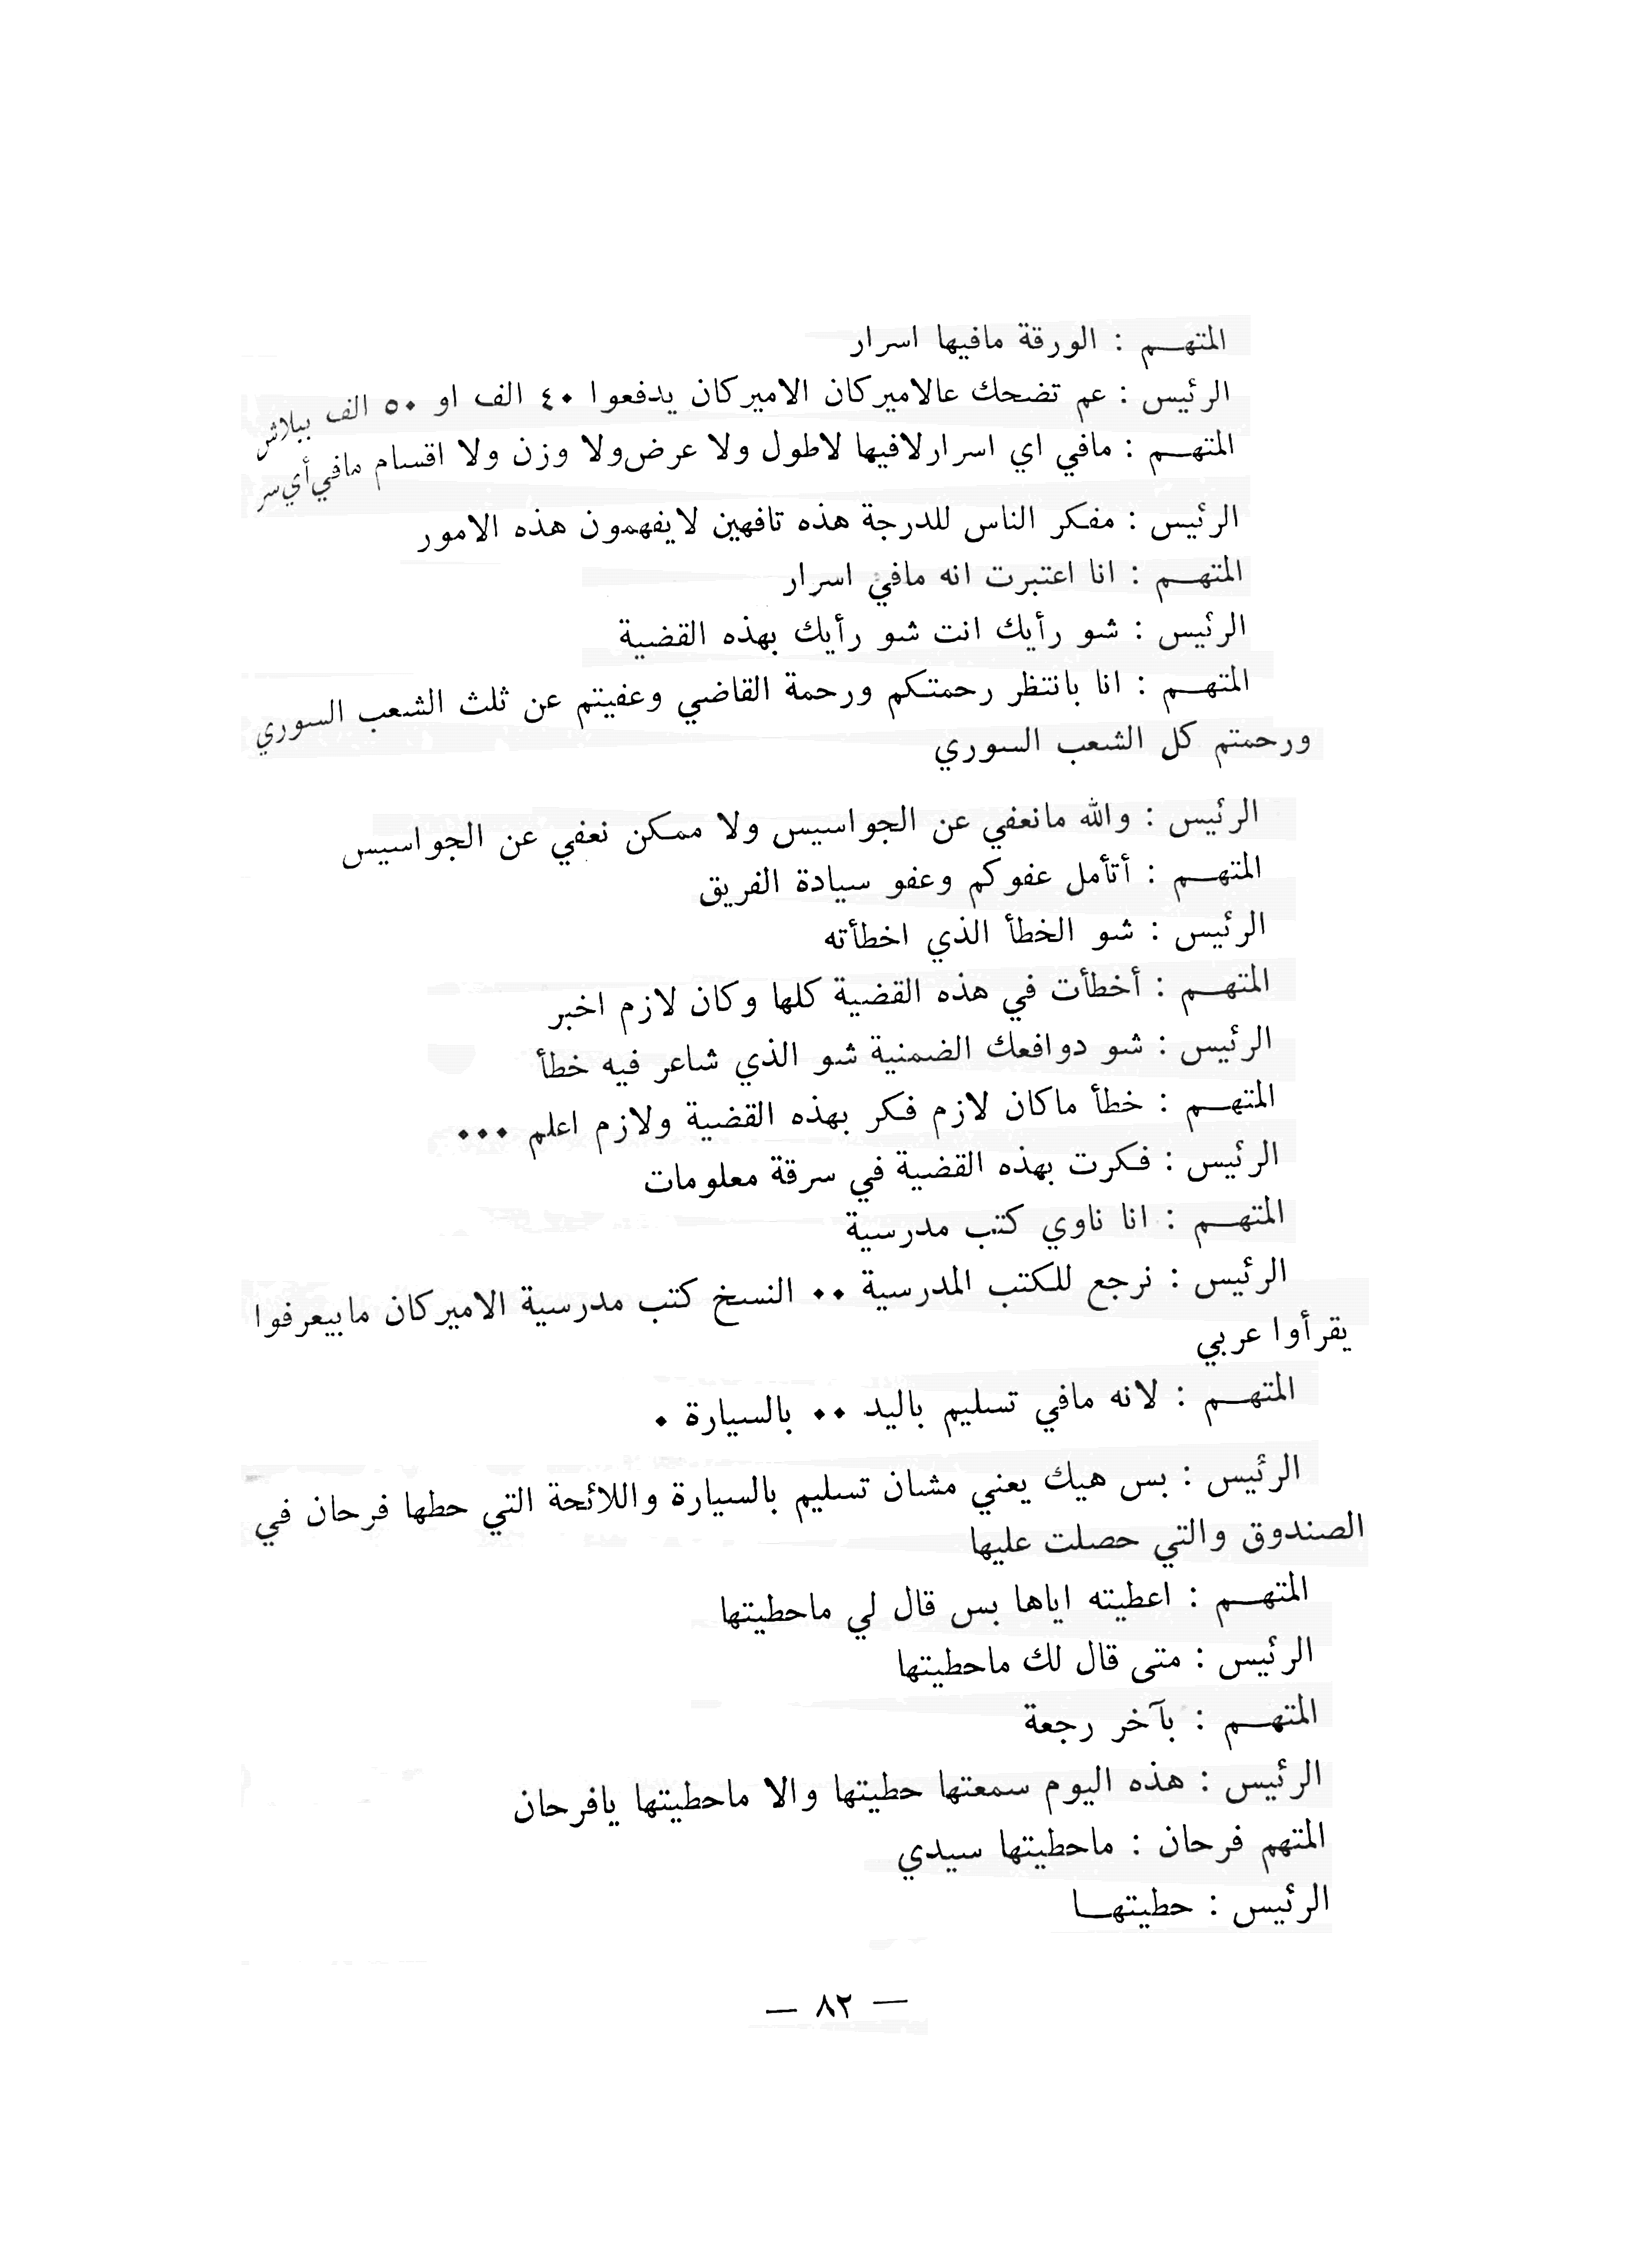 المتهــم : الورقة مافيها اسرار
الرئيس : عم تضحك عالاميركان الاميركان يدفعوا ٤٠ الف او ٥٠ الف ببلاش
المتهــم : مافي اي اسرار لافيها لاطول ولا عرض ولا وزن ولا اقسام مافي أي سر
الرئيس : مفكر الناس للدرجة هذه تافهين لايفهمون هذه الامور
المتهــم : انا اعتبرت انه مافي اسرار
الرئيس : شو رأيك انت شو رأيك بهذه القضية
المتهــم : انا بانتظر رحمتكم ورحمة القاضي وعفيتم عن ثلث الشعب السوري
ورحمتم كل الشعب السوري
الرئيس : والله مانعفي عن الجواسيس ولا ممكن نعفي عن الجواسيس
المتهــم : أتأمل عفوكم وعفو سيادة الفريق
الرئيس : شو الخطأ الذي اخطأته
المتهــم : أخطأت في هذه القضية كلها وكان لازم اخبر
الرئيس : شو دوافعك الضمنية شو الذي شاعر فيه خطأ
المتهــم : خطأ ماكان لازم فكر بهذه القضية ولازم اعلم ٠٠٠
الرئيس : فكرت بهذه القضية في سرقة معلومات
المتهــم : انا ناوي كتب مدرسية
الرئيس : نرجع للكتب المدرسية ٠٠ النسخ كتب مدرسية الاميركان مابيعرفوا
يقرأوا عربي
المتهــم : لانه مافي تسليم باليد ٠٠ بالسيارة ٠
الرئيس : بس هيك يعني مشان تسليم بالسيارة واللائحة التي حطها فرحان في
الصندوق والتي حصلت عليها
المتهــم : اعطيته اياها بس قال لي ماحطيتها
الرئيس : متى قال لك ماحطيتها
المتهــم : بآخر رجعة
الرئيس : هذه اليوم سمعتها حطيتها والا ماحطيتها يافرحان
المتهم فرحان : ماحطيتها سيدي
الرئيس : حطيتهــا
— ٨٢ —